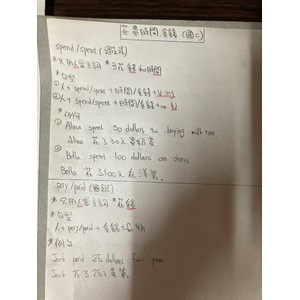 花費時間、金錢 (圖二)
spend/spent (過去式)
*只用人當主詞 *可花錢和時間
*句型
① 人+ spend/spent +時間/金錢+V-ing
② 人+ spend/spent +時間/金錢+on N
*例句
① Alina spent 30 dollars buying milk tea.
Alina 花了30元買奶茶
② Bella spent 100 dollars on dress.
Bella 花了100元在洋裝。
pay/paid (過去式)
*只用人當主詞 *花錢
*句型
人+ pay/paid +金錢+for 物
*例句
Jack paid 25 dollars for pens
Jack 花了25元買筆。